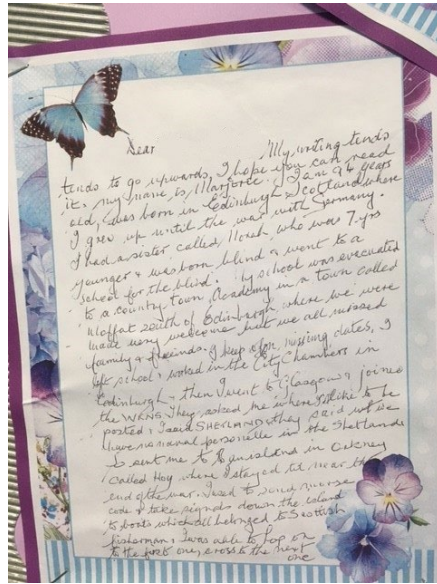 Dear
My writing tends
tends to go upwards, I hope you can read
it. my name is Marjorie. I am 96 years
old, was born in Edinburgh Scotland where
I grew up until the war with Germany.
I had a sister called, who was 7.yrs
younger & was born blind & went to a
school for the blind. My school was evacuated
to a country town, Academy in a town called
Moffat south of Edinburgh, where we were
made very welcome but we all missed
family & friends. I keep on, missing dates, I
left school & worked in the City Chambers in
Edinburgh, then I went to Glasgow & joined
the WRNS. They asked me where I'd like to be
posted, I said SHETLAND & they said we
have no naval personelle in the Shetlands
& sent me to an island in Orkney
called Hoy where I stayed till near the
end of the war. I used to send morse
code & take signals down the island
to boats which all belonged to Scottish
fisherman & I was able to hop on
to the first one, cross to the next
one